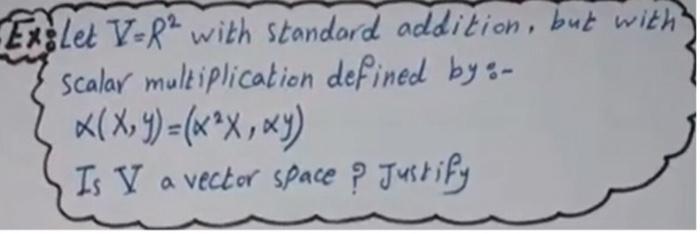 Ex: Let V=R² with standard addition, but with
scalar multiplication defined by :-
α(X,y)=(α²X, αy)
Is V a vector space ? Justify